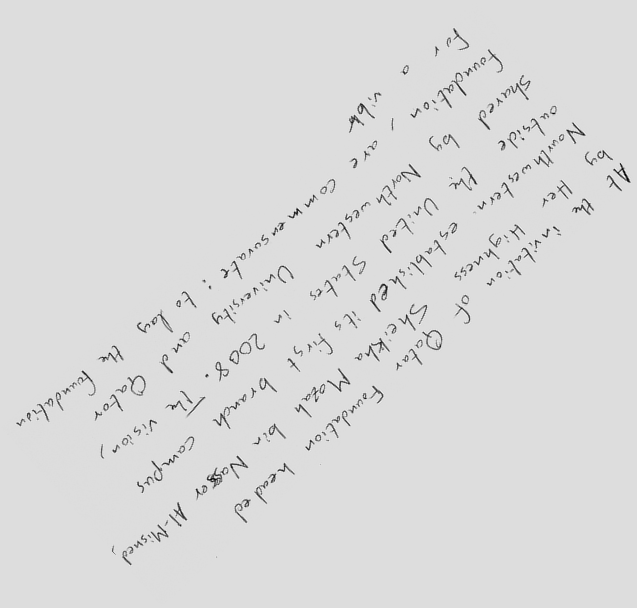 At the invitation of Qatar Foundation headed
by Her Highness Sheikha Mozah bin Al-Misned,
Northwestern. established its first branch campus
outside the United States in 2008. The vision,
shared by Northwestern University and Qator
Foundation, are commensurate: today the foundation
for a